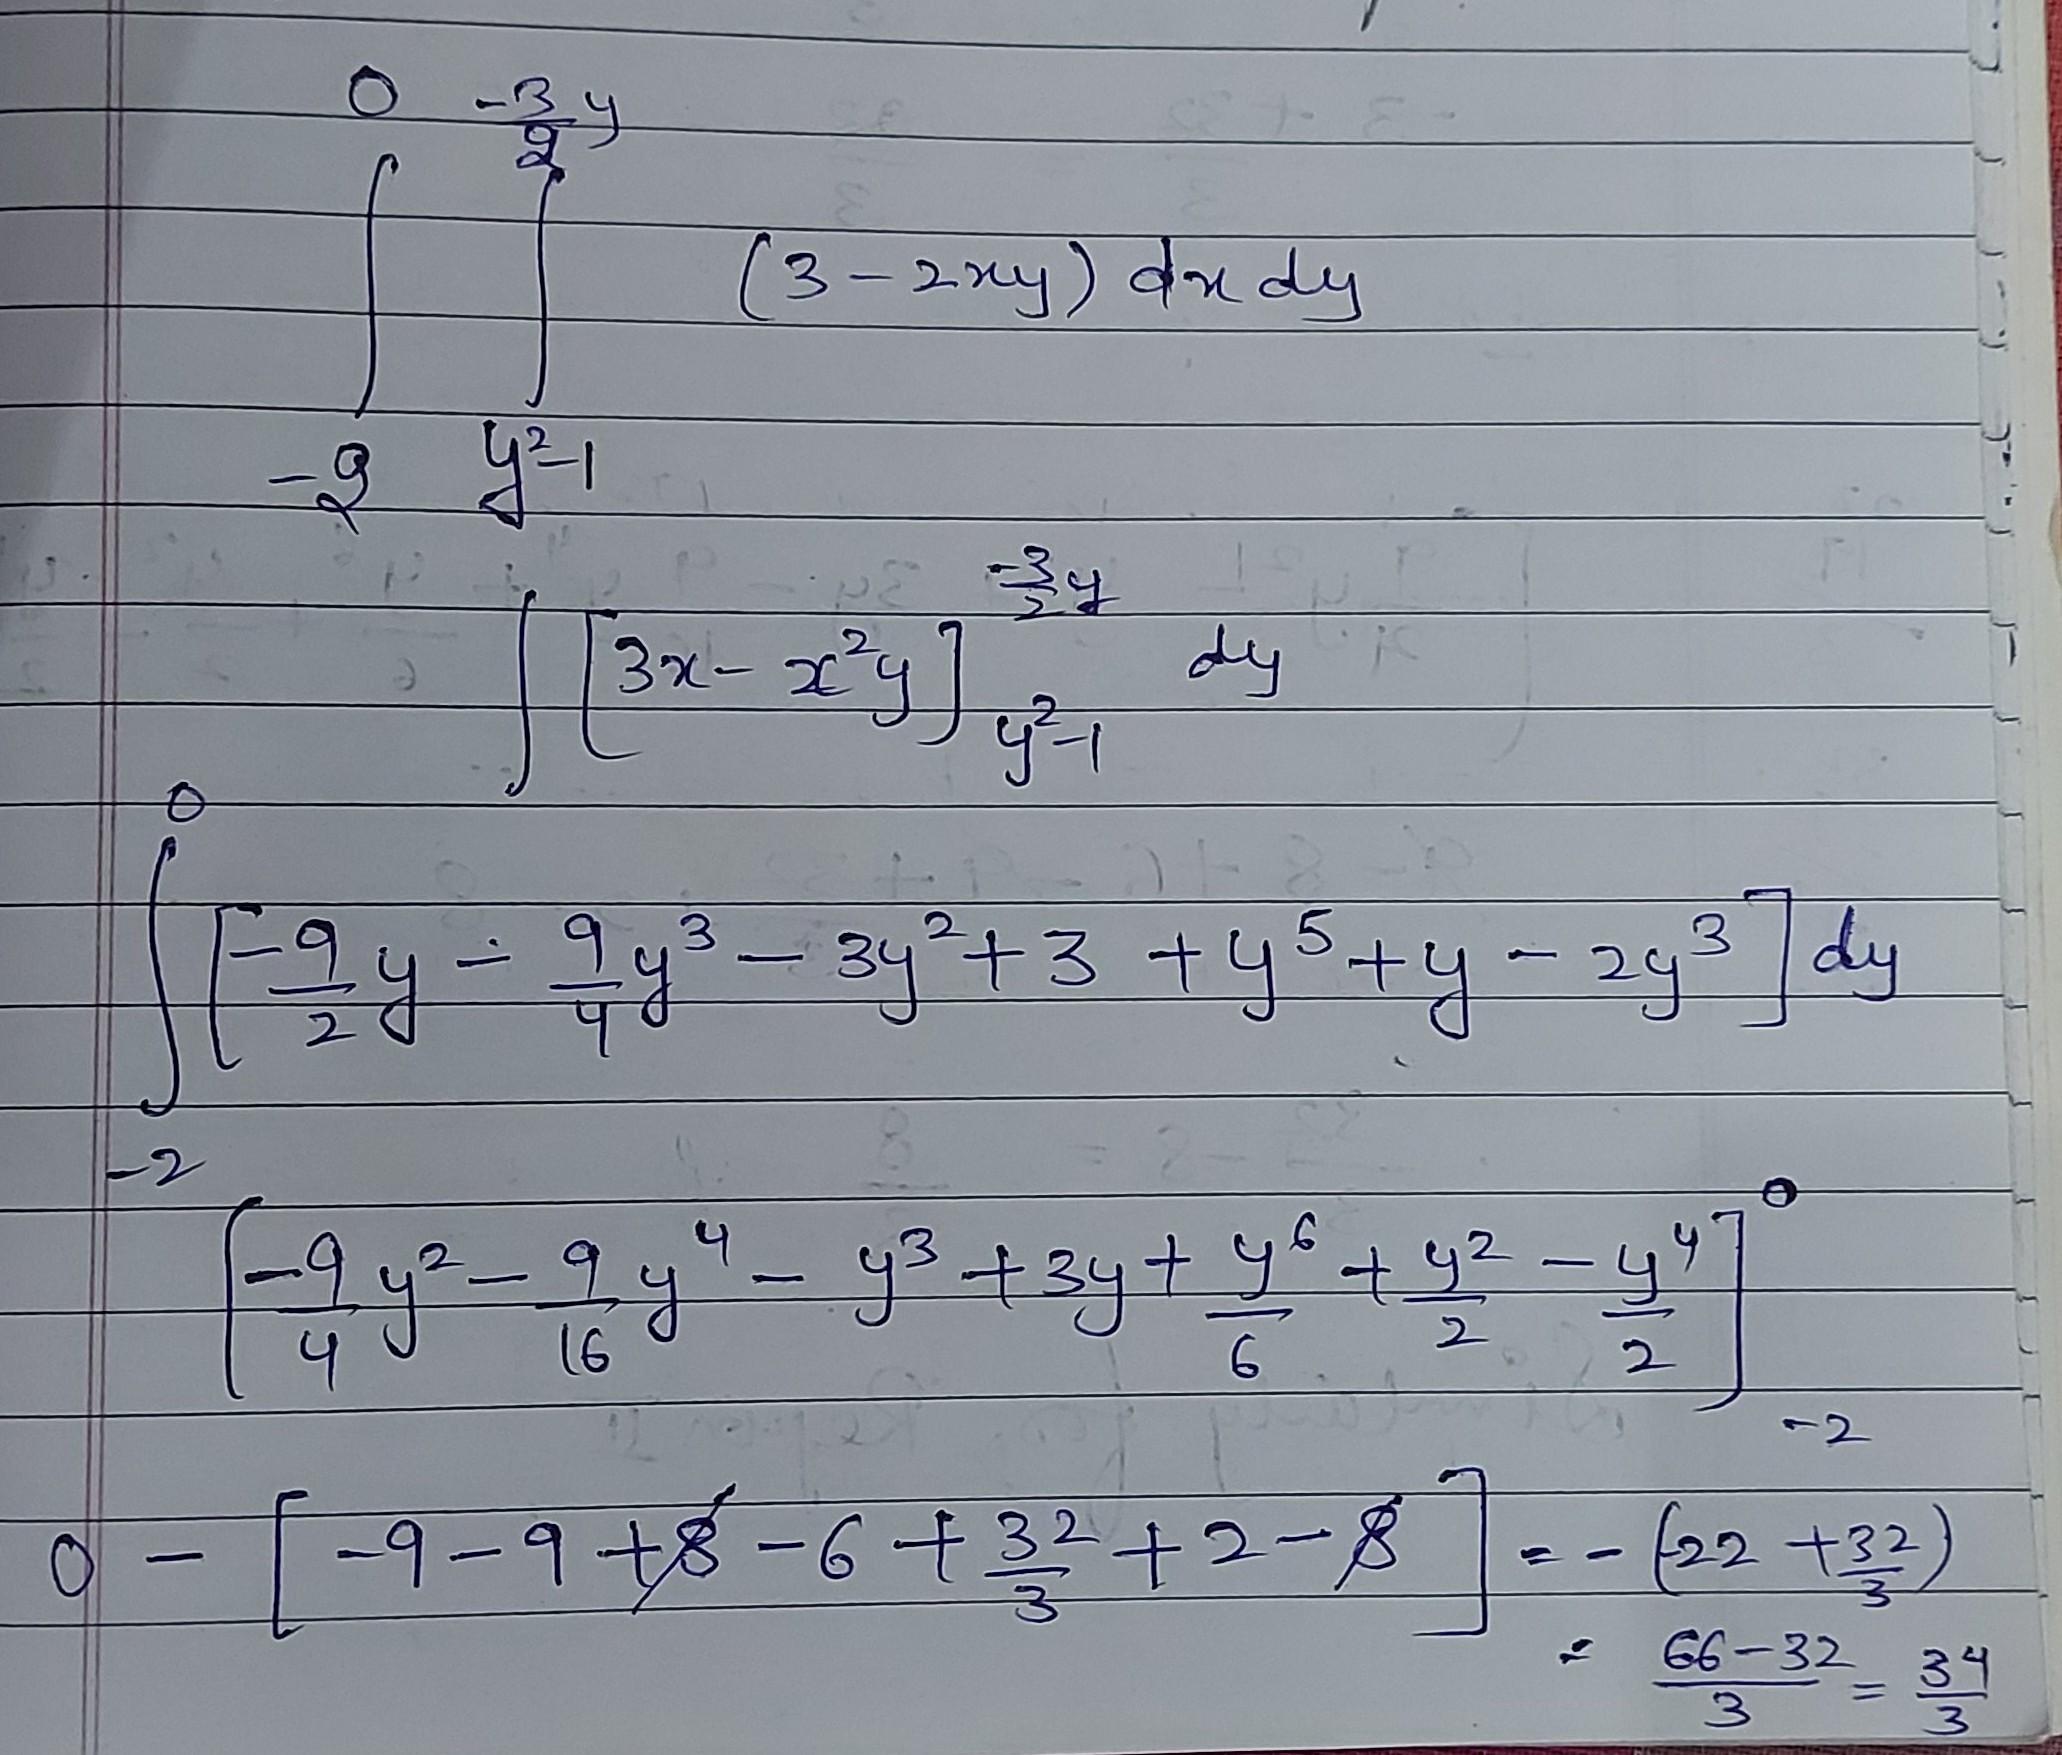 ∫_{-2}^{0} ∫_{y²-1}^{-3/2 y} (3 - 2xy) dx dy
∫ [3x - x²y]_{y²-1}^{-3/2 y} dy
∫_{-2}^{0} [-9/2 y - 9/4 y³ - 3y² + 3 + y⁵ + y - 2y³] dy
[-9/4 y² - 9/16 y⁴ - y³ + 3y + y⁶/6 + y²/2 - y⁴/2]_{-2}^{0}
0 - [-9 - 9 + 8 - 6 + 32/3 + 2 - 8] = -(-22 + 32/3)
= (66 - 32)/3 = 34/3